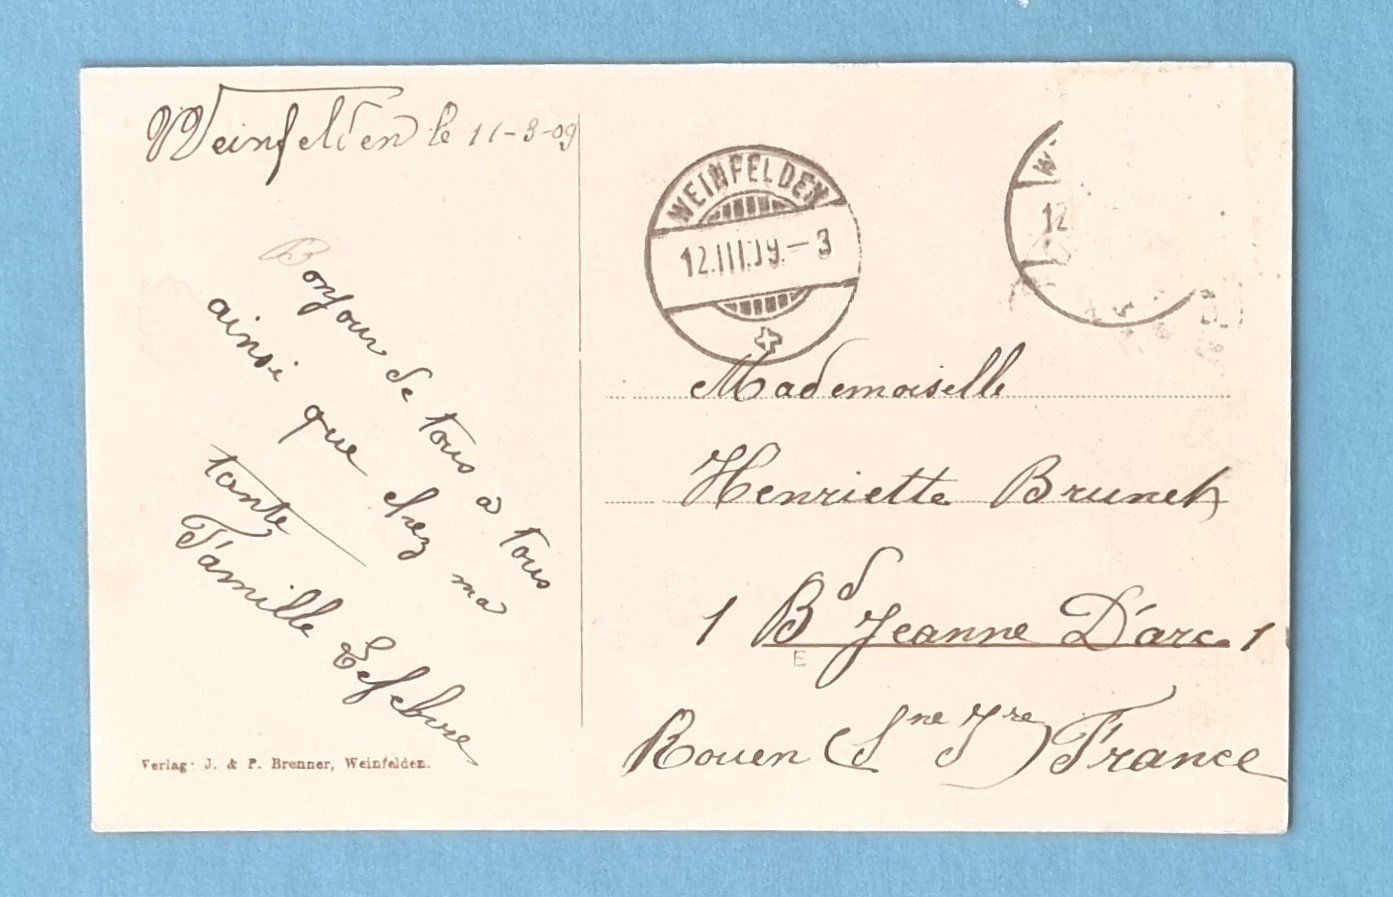 Weinfelden le 11-3-09
Bonjour de tous à tous
ainsi que chez ma
tante
Famille Lefebvre
Verlag: J. & P. Brenner, Weinfelden.
WEINFELDEN
12.III.09.-3
W
12
Mademoiselle
Henriette Brunet
1 Bd Jeanne D'arc 1
E
Rouen (Sne Jre) France